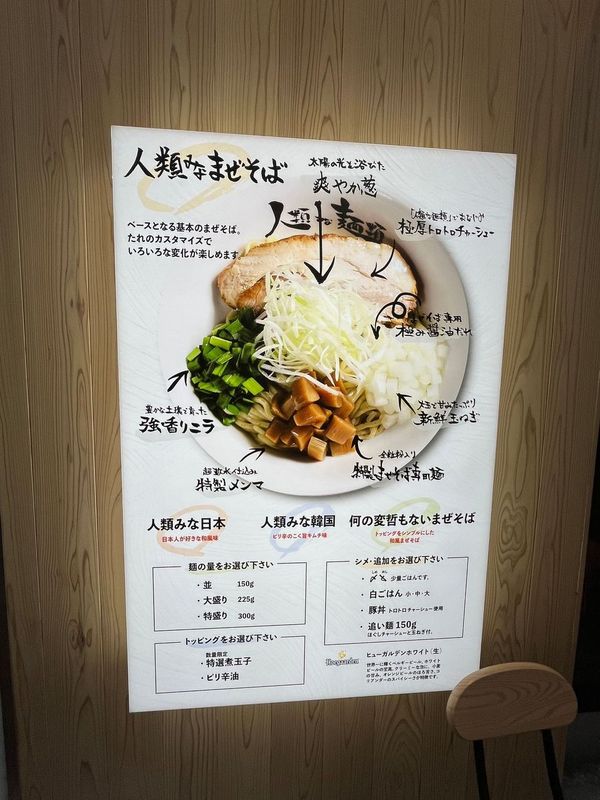 人類みなまぜそば
太陽の光を浴びた
爽やか葱
人類みな麺類
極厚トロトロチャーシュー
ベースとなる基本のまぜそば。
たれのカスタマイズで
いろいろな変化が楽しめます。
専用
極み醤油だれ
豊かな土壌で育った
強香りニラ
メきと甘みたっぷり
新鮮玉ねぎ
超軟水仕込み
特製メンマ
全粒粉入り
特製まぜそば専用麺
人類みな日本
日本人が好きな和風味
人類みな韓国
ピリ辛のこく旨キムチ味
何の変哲もないまぜそば
トッピングをシンプルにした
和風まぜそば
麺の量をお選び下さい
・並 150g
・大盛り 225g
・特盛り 300g
トッピングをお選び下さい
数量限定
・特選煮玉子
・ピリ辛油
シメ・追加をお選び下さい
・〆飯 少量ごはんです。
・白ごはん 小・中・大
・豚丼 トロトロチャーシュー使用
・追い麺 150g
ほぐしチャーシューと玉ねぎ付。
Hoegaarden
ヒューガルデンホワイト（生）
世界一に輝くベルギービール、ホワイト
ビールの定番。クリーミーな泡に、小麦
の甘み、オレンジピールのほろ苦さ、コ
リアンダーのスパイシーさが特徴です。